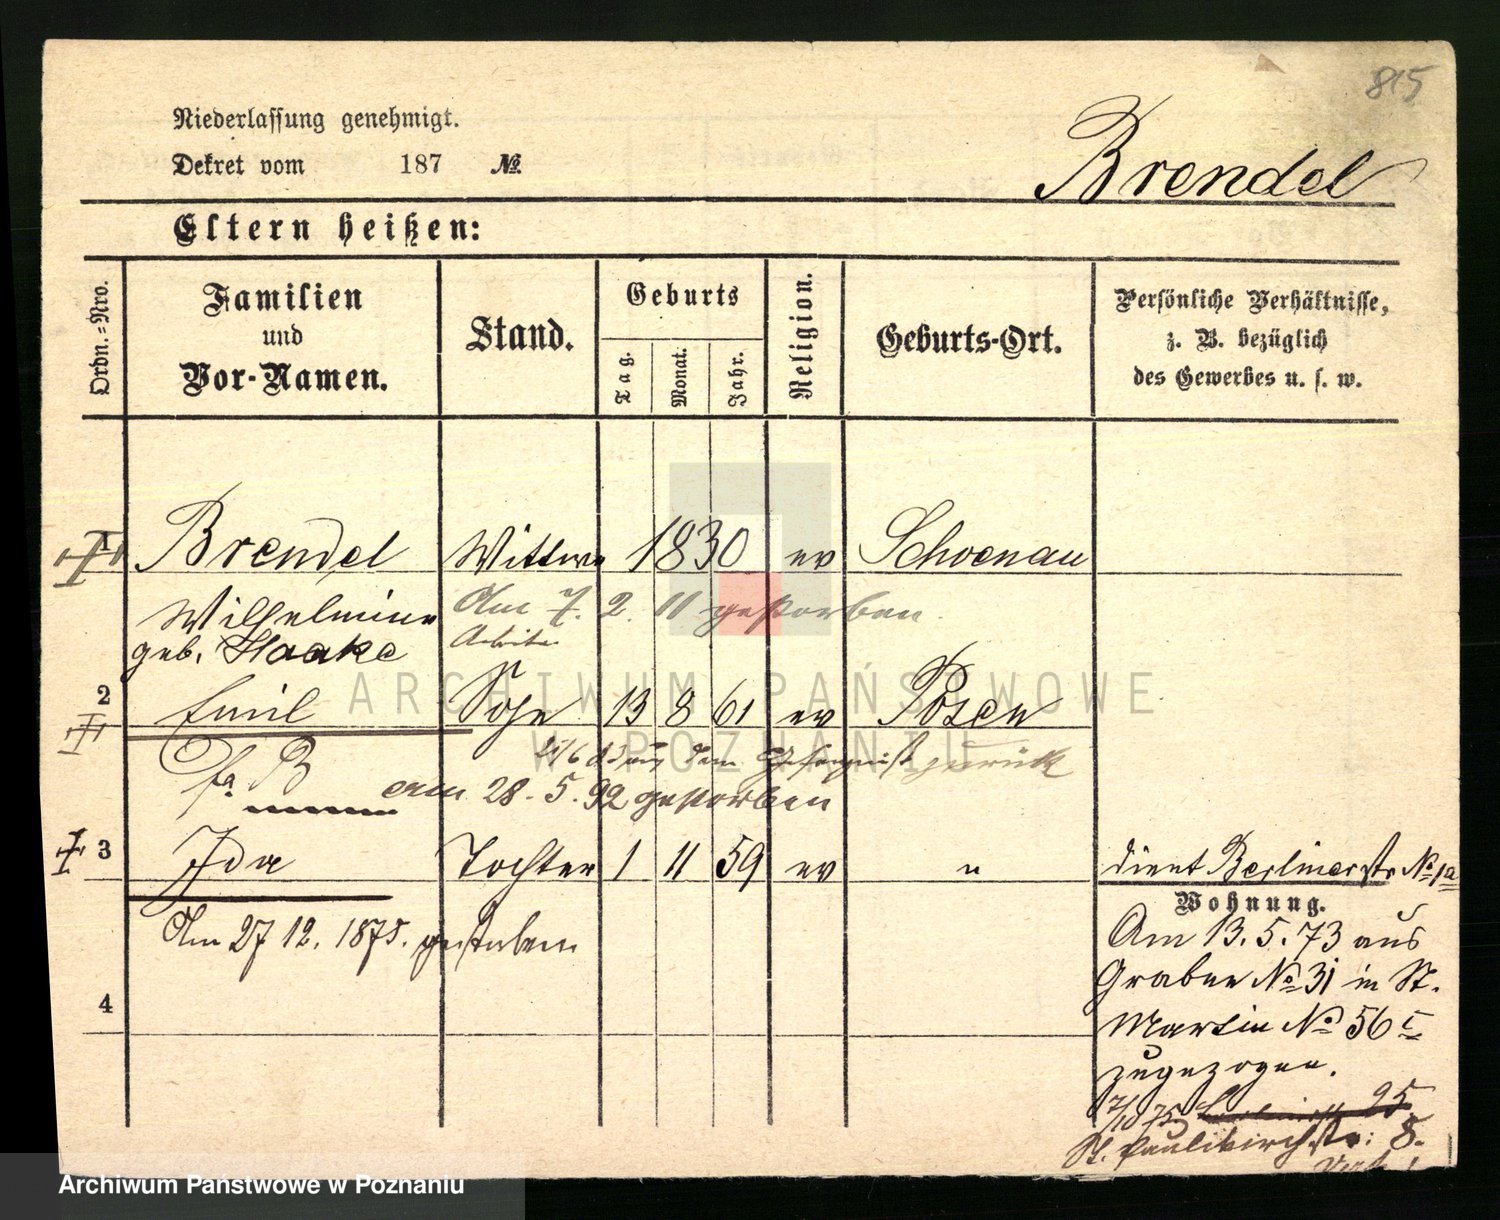 815
Niederlassung genehmigt.
Dekret vom 187 №
Brendel
Eltern heißen:
Ordn.=Nro.
Familien und Vor-Namen.
Stand.
Geburts
Tag.
Monat.
Jahr.
Religion.
Geburts-Ort.
Persönliche Verhältnisse,
z. B. bezüglich
des Gewerbes u. s. w.
1 Brendel Wittwe 1830 ev Schoenau
Wilhelmine Am 7. 2. 11 gestorben
geb. Haake Arbeiter
2 Emil Sohn 13 8 61 ev Posen
aus dem Gefängniß zurück
fa B am 28. 5. 92 gestorben
3 Ida Tochter 1 11 59 ev " dient Berlinerstr № 1a
Wohnung.
Am 27 12. 1875. gestorben
Am 13. 5. 73 aus
Graben № 31 in St.
4
Martin № 56
zugezogen.
7/10 75 25
St. Paulikirchstr: 8.
ARCHIWUM PAŃSTWOWE
W POZNANIU
Archiwum Państwowe w Poznaniu